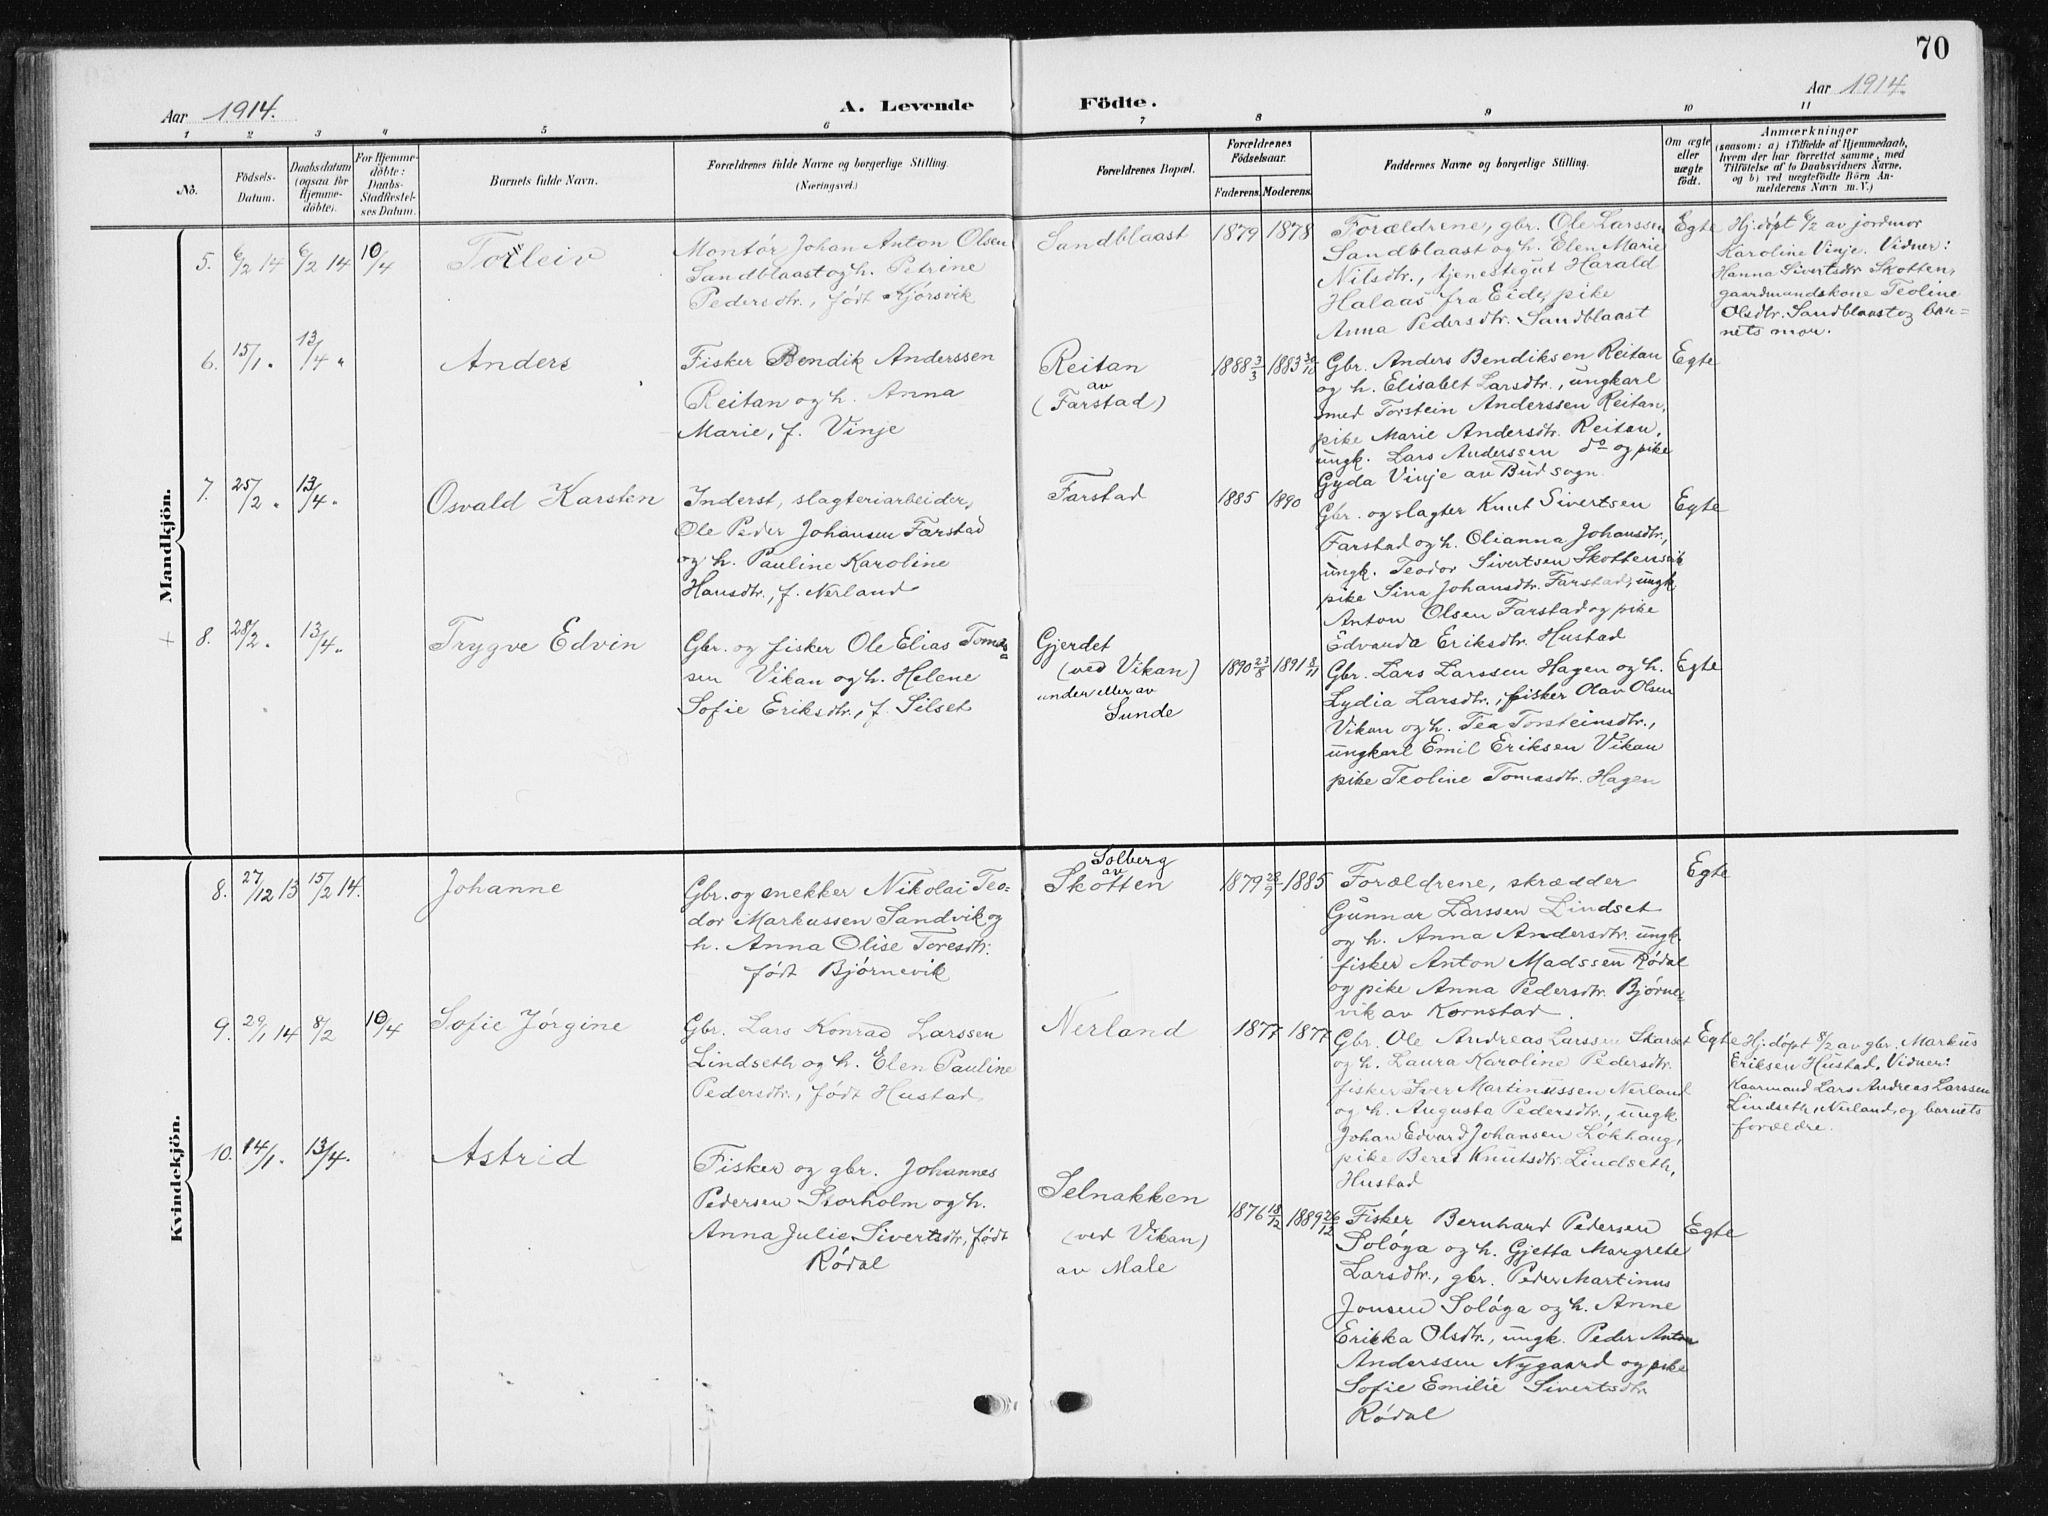 70
Aar 1914.
A. Levende Födte.
Aar 1914.
1 2 3 4 5 6 7 8 9 10 11
No.
Födsels-
Datum.
Daabsdatum
(ogsaa for
Hjemme-
döbte).
For Hjemme-
döbte:
Daabs-
Stadfæstel-
ses Datum.
Barnets fulde Navn.
Forældrenes fulde Navne og borgerlige Stilling.
(Næringsvei.)
Forældrenes Bopæl.
Forældrenes
Födselsaar.
Faderens. Moderens.
Faddernes Navne og borgerlige Stilling.
Om ægte
eller
uægte
födt.
Anmærkninger
(saasom: a) i Tilfælde af Hjemmedaab,
hvem der har forrettet samme, med
Tilföielse af to Daabsvidners Navne.
og b) ved uægtefödte Börn An-
melderens Navn m. V.)
Mandkjön.
5. 6/2 14 6/2 14 10/4 Torleiv
Montør Johan Anton Olsen
Sandblaast og h. Petrine
Pedersdtr., født Kjørsvik
Sandblaast
1879 1878
Forældrene, gbr. Ole Larssen
Sandblaast og h. Elen Marie
Nilsdtr., tjenestegut Harald
Halaas fra Eide, pike
Anna Pedersdtr. Sandblaast
Egte
Hj.døpt 6/2 av jordmor
Karoline Vinje. Vidner:
Hanna Sivertsdtr Skotten,
gaardmandskone Teoline
Olsdtr. Sandblaast og bar=
nets mor.
6. 15/1 " 13/4 " Anders
Fisker Bendik Anderssen
Reitan og h. Anna
Marie, f. Vinje
Reitan
av
(Farstad)
1888 3/3 1883 30/10
Gbr. Anders Bendiksen Reitan
og h. Elisabet Larsdtr., ungkarl
smed Torstein Anderssen Reitan,
pike Marie Andersdtr. Reitan,
ungk. Lars Anderssen do og pike
Gyda Vinje av Bud sogn.
Egte
7. 25/2 " 13/4 " Osvald Karsten
Inderst, slagteriarbeider,
Ole Peder Johansen Farstad
og h. Pauline Karoline
Hansdtr., f. Nerland
Farstad
1885 1890
Gbr. og slagter Knut Sivertsen
Farstad og h. Olianna Johansdtr.,
ungk. Teodor Sivertsen Skotten
pike Sina Johansdtr. Farstad, ungk.
Anton Olsen Farstad og pike
Edvarda Eriksdtr. Hustad
Egte
+ 8. 28/2 " 13/4 " Trygve Edvin
Gbr. og fisker Ole Elias Tomas=
sen Vikan og h. Helene
Sofie Eriksdtr., f. Silset
Gjerdet
(ved Vikan)
under eller av
Sunde
1890 23/8 1891 8/11
Gbr. Lars Larssen Hagen og h.
Lydia Larsdtr., fisker Olav Olsen
Vikan og h. Tea Torsteinsdtr.,
ungkarl Emil Eriksen Vikan
pike Teoline Tomasdtr. Hagen
Egte
Kvindekjön.
8. 27/12 13 15/2 14. Johanne
Gbr. og snekker Nikolai Teo=
dor Markussen Sandvik og
h. Anna Olise Toresdtr.
født Bjørnevik
Solberg
av
Skotten
1879 28/9 1885
Forældrene, skrædder
Gunnar Larssen Lindset
og h. Anna Andersdtr. ungk.
fisker Anton Madssen Rødal
og pike Anna Pedersdtr. Bjørne=
vik av Kornstad.
Egte
9. 29/1 14 8/2 10/4 Sofie Jørgine
Gbr. Lars Konrad Larssen
Lindseth og h. Elen Pauline
Pedersdtr., født Hustad
Nerland
1877 1877
Gbr. Ole Andreas Larssen Skarset
og h. Laura Karoline Pedersdtr.
fisker Iver Martinussen Nerland
og h. Augusta Pedersdtr., ungk.
Johan Edvard Johansen Løkhaug,
pike Beret Knutsdtr. Lindseth,
Hustad
Egte
Hj.døpt 8/2 av gbr. Markus
Eriksen Hustad. Vidner:
kaarmand Lars Andreas Larssen
Lindseth, Nerland, og barnets
forældre.
10. 14/1 " 13/4 " Astrid
Fisker og gbr. Johannes
Pedersen Storholm og h.
Anna Julie Sivertsdtr, født
Rødal
Selnakken
(ved Vikan)
av Male
1876 18/12 1889 26/12
Fisker Bernhard Pedersen
Soløga og h. Gjetta Margrete
Larsdtr., gbr. Peder Martinus
Jonsen Soløga og h. Anne
Erikka Olsdtr., ungk. Peder Anton
Anderssen Nygaard og pike
Sofie Emilie Sivertsdtr
Rødal
Egte